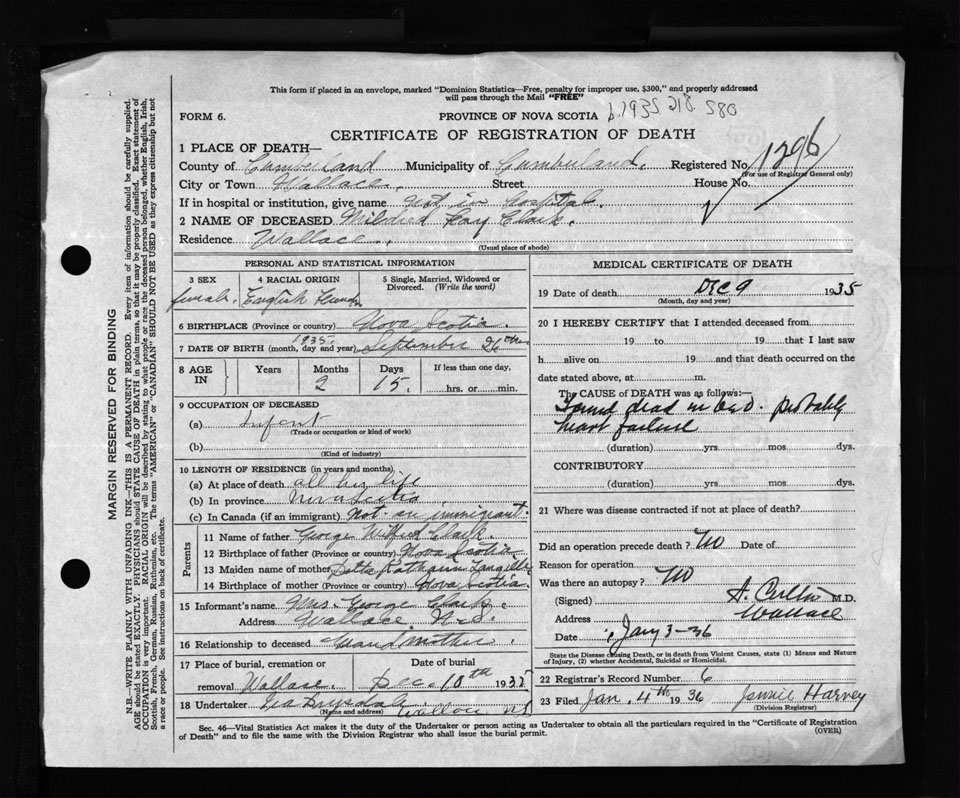 This form if placed in an envelope, marked "Dominion Statistics—Free, penalty for improper use, $300," and properly addressed
will pass through the Mail "FREE"
FORM 6.
PROVINCE OF NOVA SCOTIA b.1935 218 580
CERTIFICATE OF REGISTRATION OF DEATH
1 PLACE OF DEATH—
County of Cumberland Municipality of Cumberland. Registered No. 1296
(For use of Registrar General only)
City or Town Wallace. Street House No.
If in hospital or institution, give name Not in hospital.
2 NAME OF DECEASED Mildred Fay Clark.
Residence Wallace.
(Usual place of abode)
PERSONAL AND STATISTICAL INFORMATION
3 SEX 4 RACIAL ORIGIN 5 Single, Married, Widowed or
Divorced. (Write the word)
female. English French
6 BIRTHPLACE (Province or country) Nova Scotia.
7 DATE OF BIRTH (month, day and year) 1935. September 26th
8 AGE IN Years Months Days If less than one day,
2 15. hrs. or min.
9 OCCUPATION OF DECEASED
(a) Infant
(Trade or occupation or kind of work)
(b)
(Kind of industry)
10 LENGTH OF RESIDENCE (in years and months)
(a) At place of death all her life
(b) In province Nova Scotia
(c) In Canada (if an immigrant) Not an immigrant.
Parents
11 Name of father George Wilfred Clark.
12 Birthplace of father (Province or country) Nova Scotia
13 Maiden name of mother Delta Langille
14 Birthplace of mother (Province or country) Nova Scotia.
15 Informant's name Mrs. George Clark.
Address Wallace. N.S.
16 Relationship to deceased Grandmother.
17 Place of burial, cremation or Date of burial
removal Wallace. Dec. 10th 1935
18 Undertaker Drysdale Wallace NS
(Name and address)
MEDICAL CERTIFICATE OF DEATH
19 Date of death Dec 9 1935
(Month, day and year)
20 I HEREBY CERTIFY that I attended deceased from
19 to 19 that I last saw
h alive on 19 and that death occurred on the
date stated above, at m.
The CAUSE of DEATH was as follows:—
Found dead in bed. probably
heart failure
(duration) yrs. mos. dys.
CONTRIBUTORY
(duration) yrs. mos. dys.
21 Where was disease contracted if not at place of death?
Did an operation precede death? No Date of
Reason for operation
Was there an autopsy? No
(Signed) M.D.
Address Wallace
Date Jany 3-36
State the Disease causing Death, or in death from Violent Causes, state (1) Means and Nature
of Injury, (2) whether Accidental, Suicidal or Homicidal.
22 Registrar's Record Number 6
23 Filed Jan. 4th 1936 Jennie Harvey
(Division Registrar)
Sec. 46—Vital Statistics Act makes it the duty of the Undertaker or person acting as Undertaker to obtain all the particulars required in the "Certificate of Registration
of Death" and to file the same with the Division Registrar who shall issue the burial permit. (OVER)
MARGIN RESERVED FOR BINDING
N.B.—WRITE PLAINLY WITH UNFADING INK—THIS IS A PERMANENT RECORD. Every item of information should be carefully supplied.
AGE should be stated EXACTLY. PHYSICIANS should STATE CAUSE OF DEATH in plain terms, so that it may be properly classified. Exact statement of
OCCUPATION is very important. RACIAL ORIGIN will be described by stating to what people or race the deceased person belonged, whether English, Irish,
Scottish, French, German, Russian, Ruthenian, etc. The terms "AMERICAN" or "CANADIAN" SHOULD NOT BE USED as they express citizenship but not
a race or people. See instructions on back of certificate.